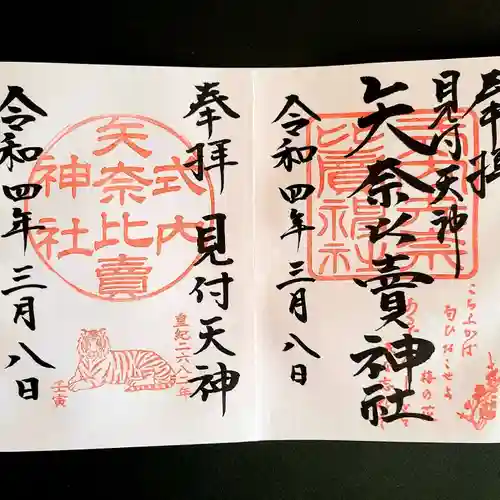 奉拝
見付天神
矢奈比賣神社
令和四年三月八日
こちふかば
匂ひおこせよ
梅の花
奉拝
見付天神
皇紀二六八二年
壬寅
式内
矢奈比賣
神社
令和四年三月八日